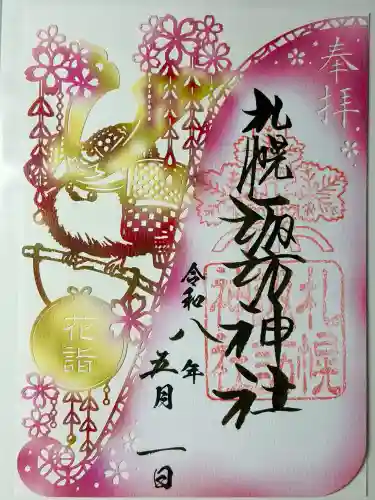 奉拝
札幌諏訪神社
札幌諏訪神社
令和八年
五月一日
花詣